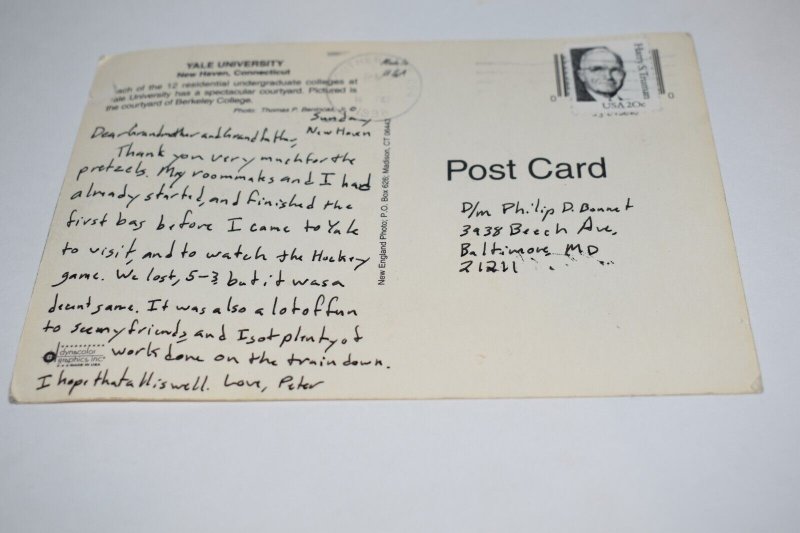 YALE UNIVERSITY
New Haven, Connecticut
ach of the 12 residential undergraduate colleges at
ale University has a spectacular courtyard. Pictured is
the courtyard of Berkeley College.
Photo: Thomas P.
Made in
USA
Sunday
New Haven
Dear Grandmother and Grandfather,
Thank you very much for the
pretzels. My roommates and I had
already started, and finished the
first bag before I came to Yale
to visit, and to watch the Hockey
game. We lost, 5-3 but it was a
decent game. It was also a lot of fun
to see my friends, and I got plenty of
work done on the train down.
I hope that all is well. Love, Peter
dynacolor
graphics inc.
MADE IN USA
New England Photo; P.O. Box 626; Madison, CT 06443
Harry S. Truman
USA 20c
Post Card
D/m Philip D. Bonnet
3938 Beech Ave,
Baltimore, MD
21211